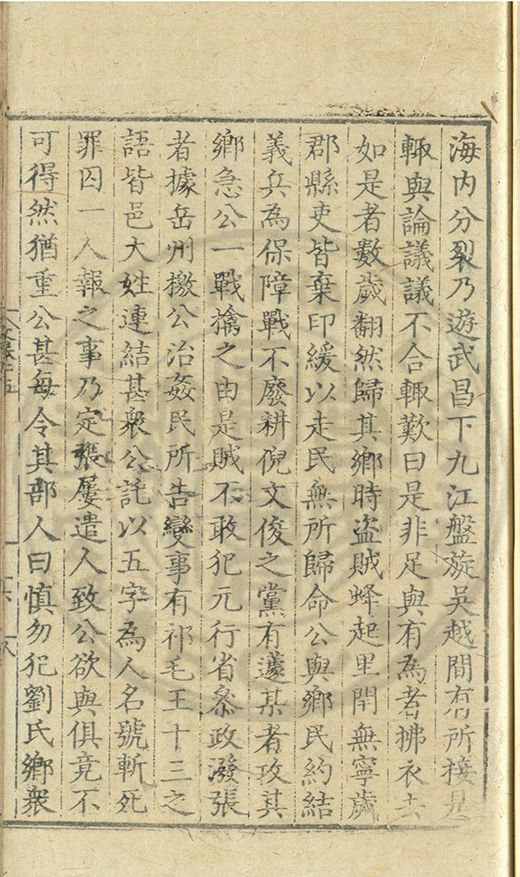 海内分裂乃遊武昌下九江盤旋吳越間有所接見
輒與論議議不合輒歎曰是非足與有為者拂衣去
如是者數歲翻然歸其鄉時盜賊蜂起里閈無寧歲
郡縣吏皆棄印緩以走民無所歸命公與鄉民約結
義兵為保障戰不廢耕倪文俊之黨有蘧某者攻其
鄉急公一戰擒之由是賊不敢犯元行省叅政潑張
者據岳州檄公治姦民所告變事有祁毛王十三之
語皆邑大姓連結甚衆公託以五字為人名號斬死
罪囚一人報之事乃定張屢遣人致公欲與俱竟不
可得然猶重公甚每令其部人曰慎勿犯劉氏鄉衆